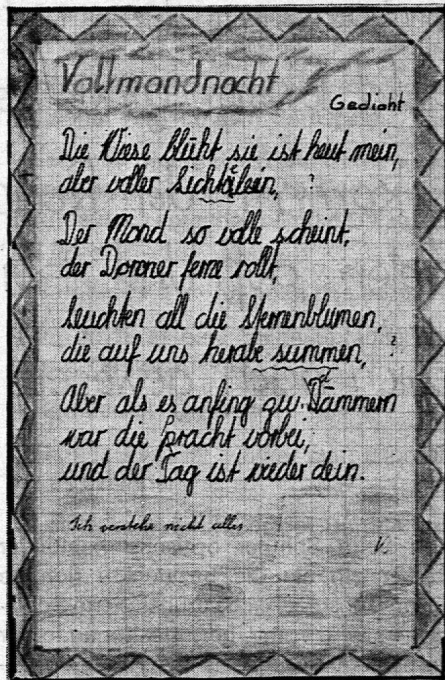 Vollmondnacht
Gedicht
Die Wiese blüht sie ist heut mein,
aber voller Lichtelein, ?
Der Mond so volle scheint,
der Donner ferne rollt,
leuchten all die Sternenblumen,
die auf uns herabe summen, ?
Aber als es anfing zu Dämmern
war die pracht vorbei,
und der Tag ist wieder dein.
Ich verstehe nicht alles
V.